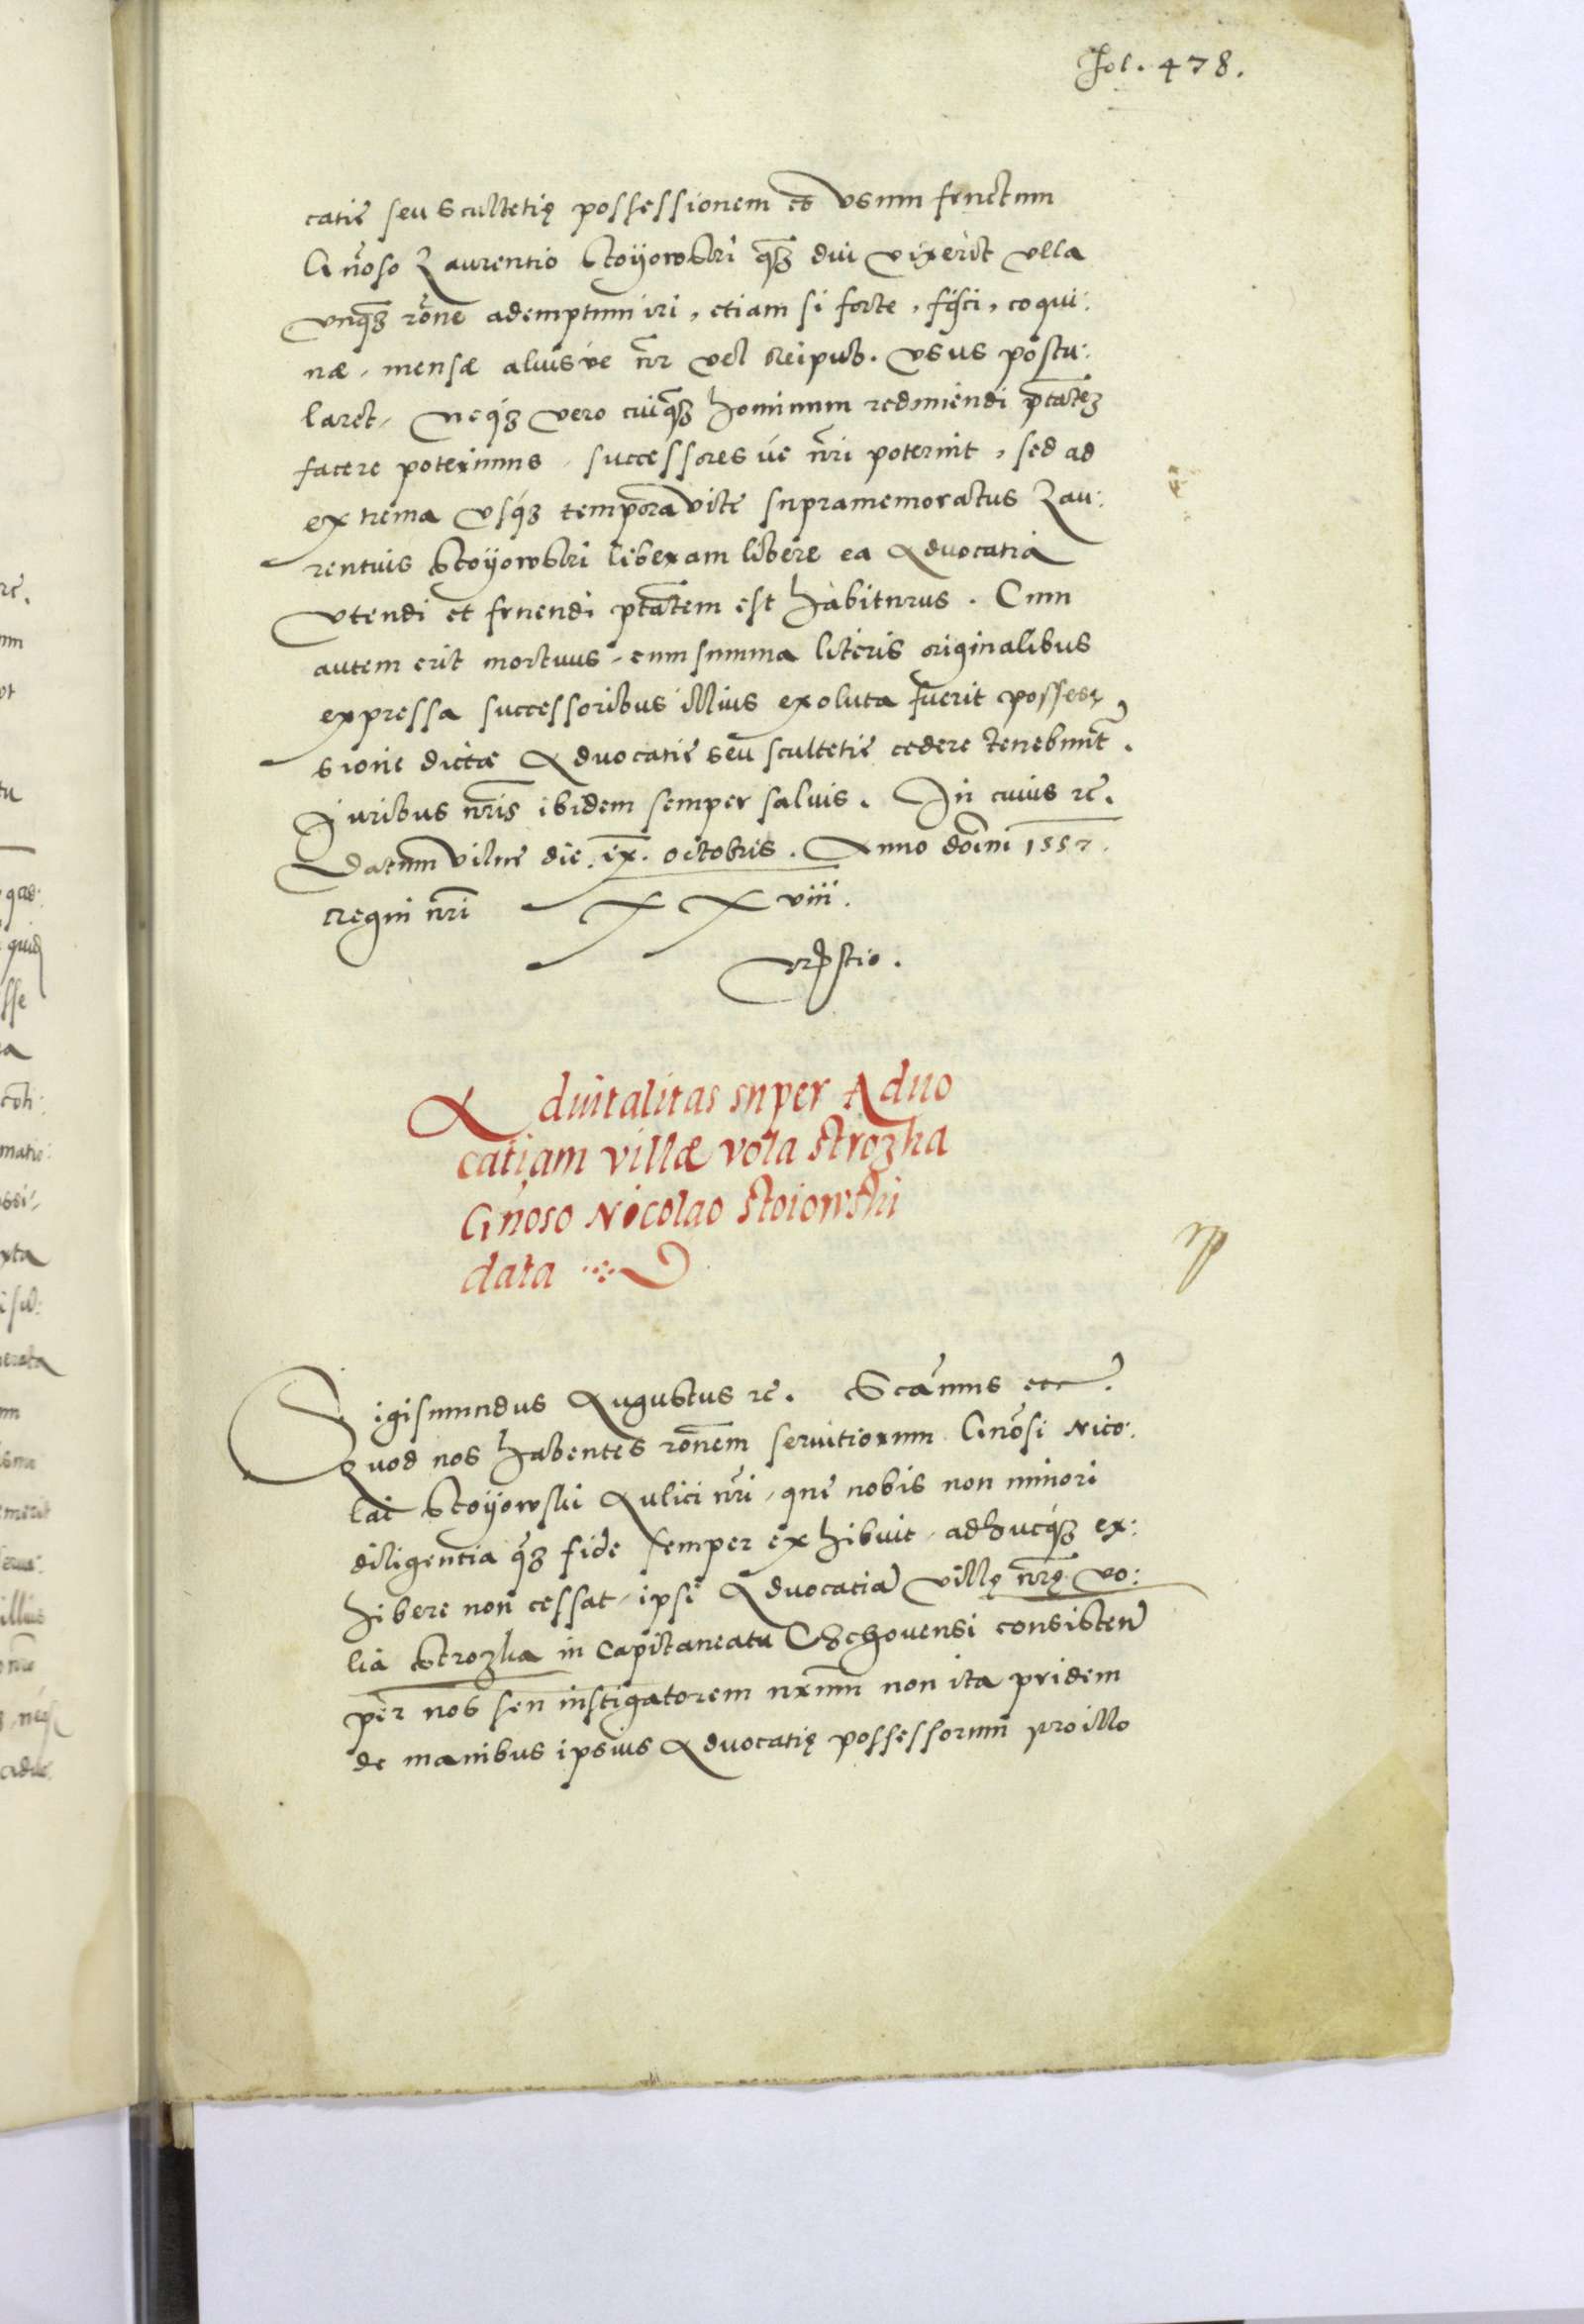 Fol. 478.
catiæ seu scultetię possessionem et vsum fructum
G n̄oso Laurentio Stoyowski q̃ʒ diu vixerit vlla
vnq̃ʒ rõne ademptum iri, etiam si forte, fisci, coqui:
næ, mensæ aliusve nr̃ vel Reipub. vsus postu:
laret, neqʒ vero cuiq̃ʒ hominum redimendi ptãteʒ
facere poterimus, successores ve nr̃i poterint, sed ad
extrema vsqʒ tempora vitæ supramemoratus Lau:
rentius Stoyowski liberam libere ea Aduocatia
vtendi et fruendi ptãtem est habiturus. Cum
autem erit mortuus, cum summa literis originalibus
expressa successoribus illius exoluta fuerit posses,
sione dictæ Aduocatiæ seu scultetiæ cedere tenebunt̃.
Juribus nr̃is ibidem semper saluis. In cuius rē.
Datum Vilnæ die. ix. octobris. Anno dõini 1557.
Regni nr̃i XXviii.
Advitalitas super Aduo
catiam villæ vola Strozka
G n̄oso Nicolao Stoiowski
data
Sigismundus Augustus rē. Scãmus etc.
Quod nos habentes rõnem seruitiorum Gnõsi Nico:
lai Stoyowski Aulici nr̃i, quæ nobis non minori
diligentia q̃ʒ fide semper exhibuit, adhucqʒ ex:
hibere non cessat, ipsi Aduocatiã villę nr̃ę vo:
lia Strozka in Capitaneatu Ochovensi consisteñ
per nos seu instigatorem nr̃um non ita pridem
de manibus ipsius Aduocatię possessorum pro illo